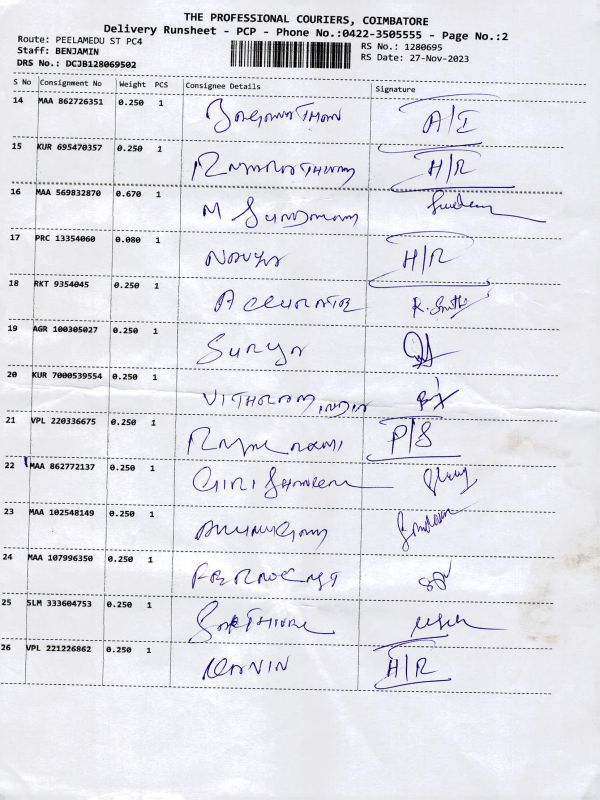 THE PROFESSIONAL COURIERS, COIMBATORE
Delivery Runsheet - PCP - Phone No.:0422-3505555 - Page No.:2
Route: PEELAMEDU ST PC4 RS No.: 1280695
Staff: BENJAMIN RS Date: 27-Nov-2023
DRS No.: DCJB128069502
S No Consignment No Weight PCS Consignee Details Signature
14 MAA 862726351 0.250 1 A/I
15 KUR 695470357 0.250 1 H/R
16 MAA 569832870 0.670 1 M SUNDARAM
17 PRC 13354060 0.080 1 NAVYA H/R
18 RKT 9354045 0.250 1 ACCURATE
19 AGR 100305027 0.250 1 SURYA
20 KUR 7000539554 0.250 1
21 VPL 220336675 0.250 1 P/S
22 MAA 862772137 0.250 1 GIRI SHANKER
23 MAA 102548149 0.250 1
24 MAA 107996350 0.250 1
25 SLM 333604753 0.250 1
26 VPL 221226862 0.250 1 H/R